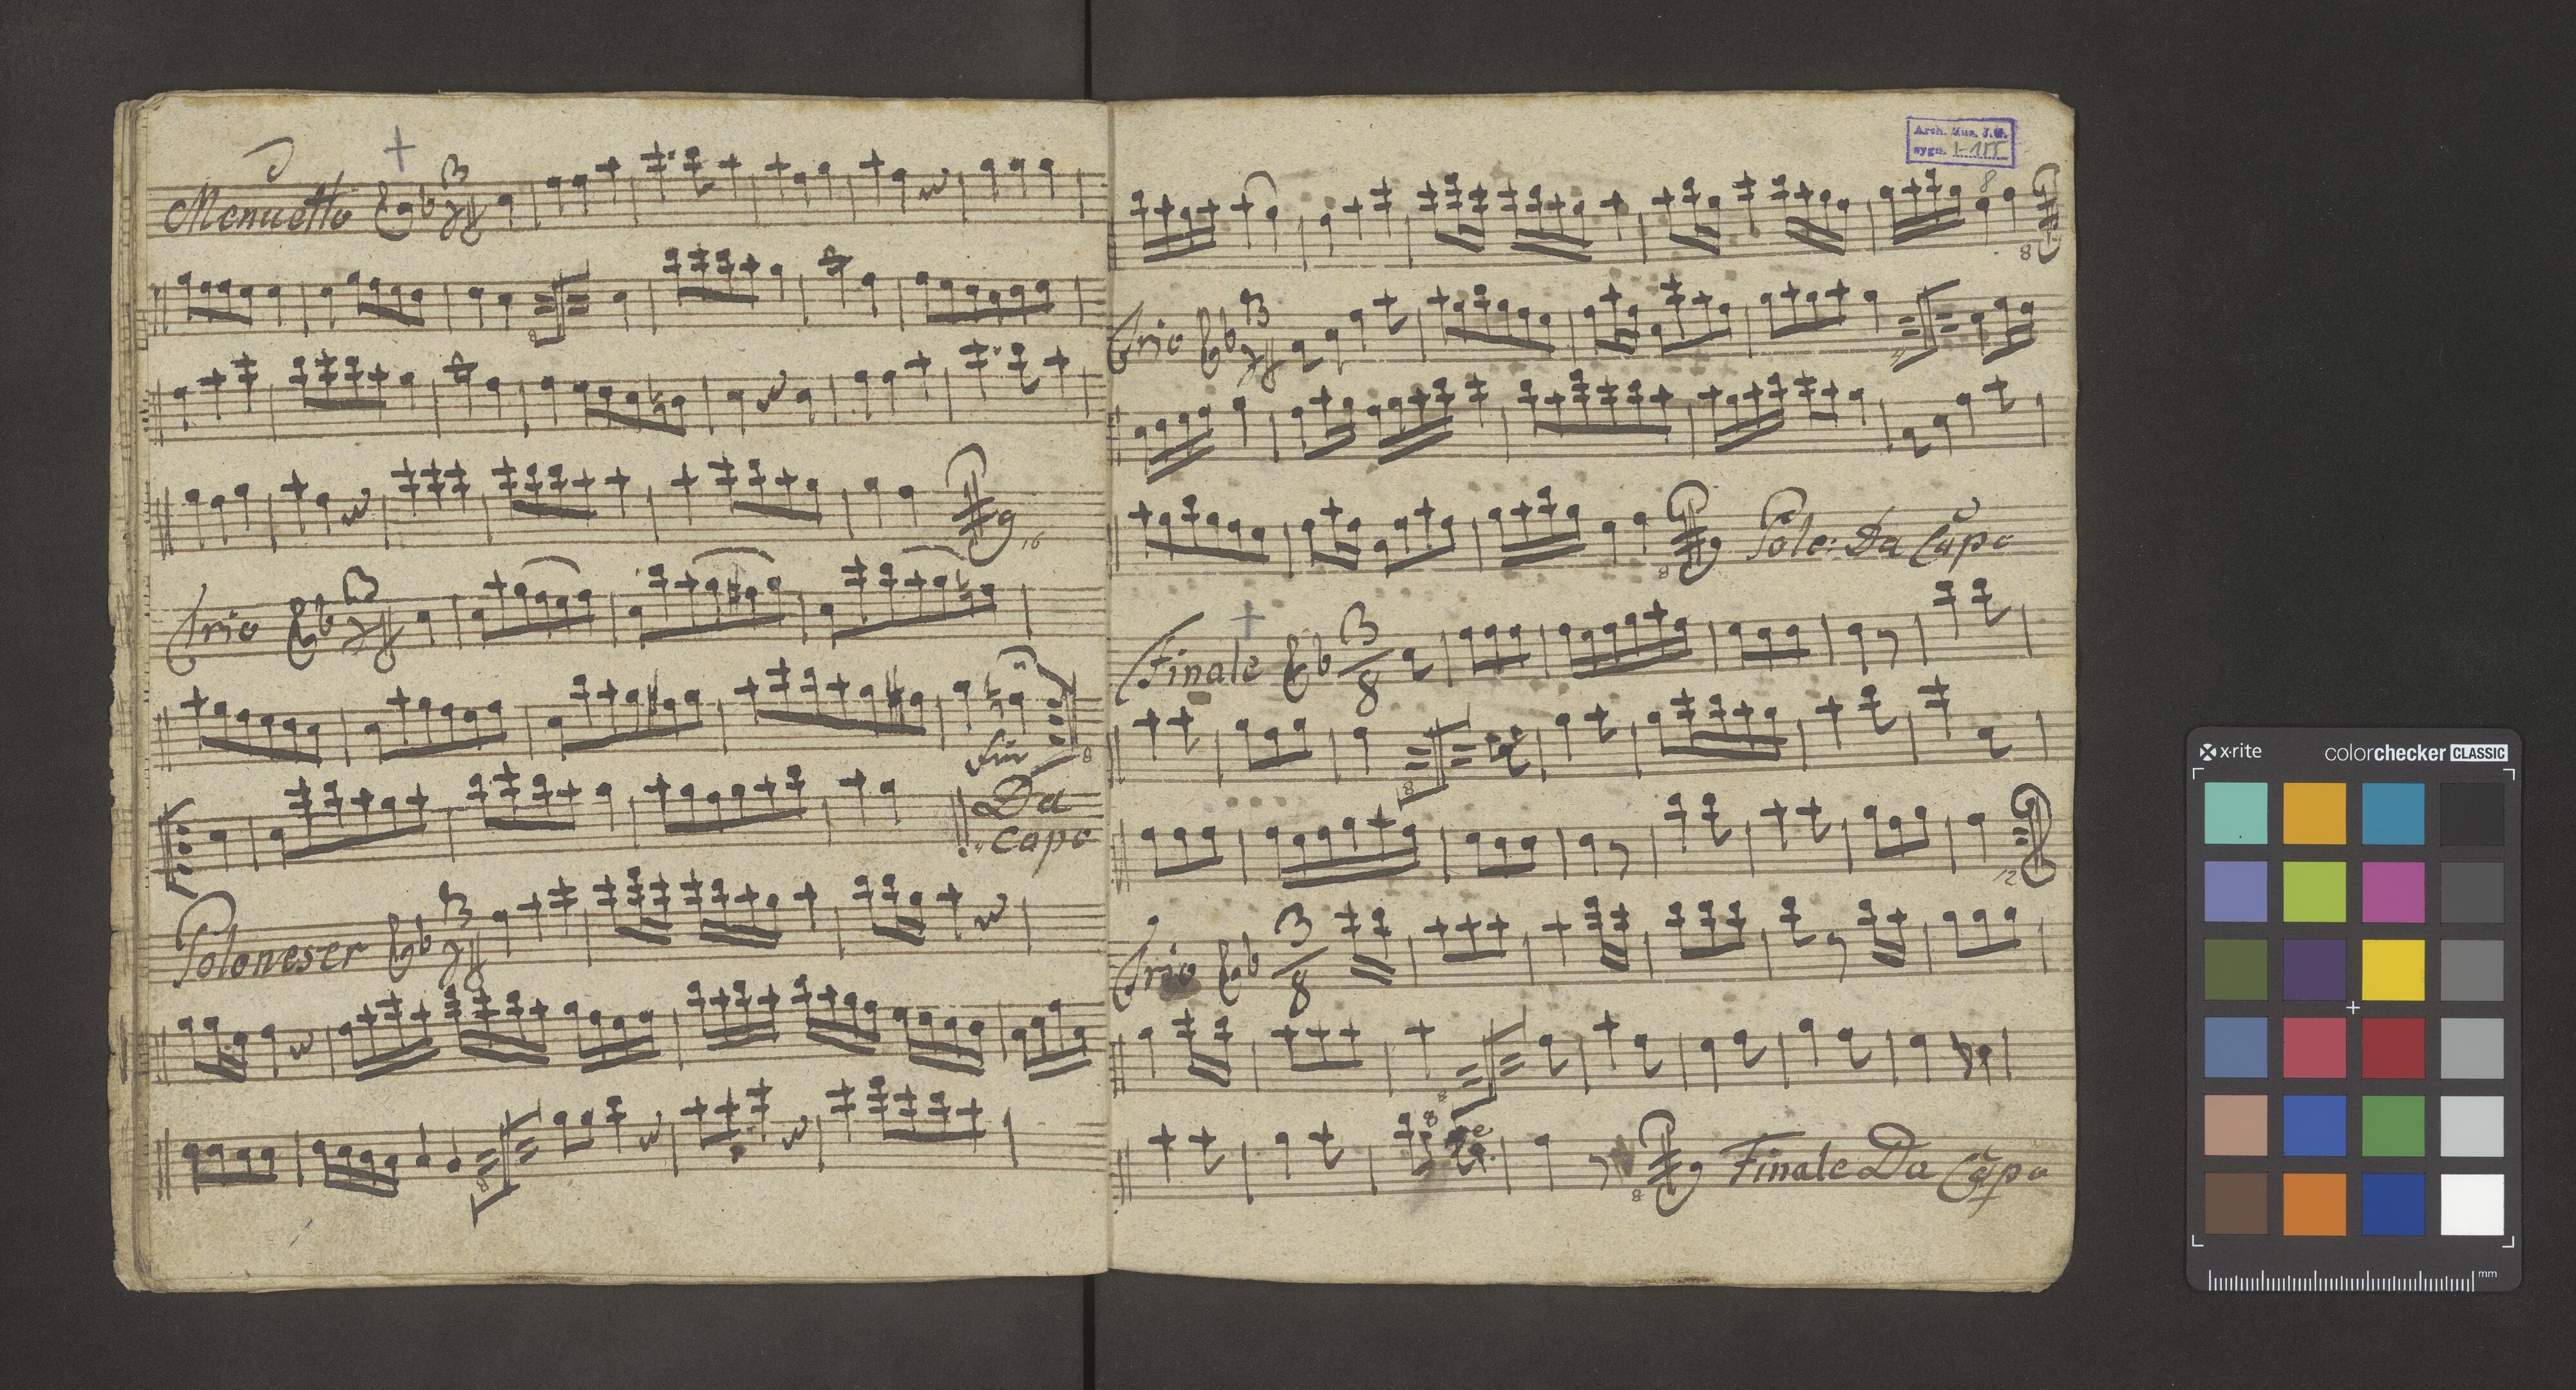 Menuetto 3/4
8
16
Trio 3/4
Fin
8
Da
capo
Poloneser 3/4
8
Arch. Mus. J.G.
sygn. I-111
8
8
Trio 3/4
8
Polo: Da Capo
Finale 3/8
8
12
Trio 3/8
8
8
8
Finale Da Capo
x-rite
colorchecker CLASSIC
mm